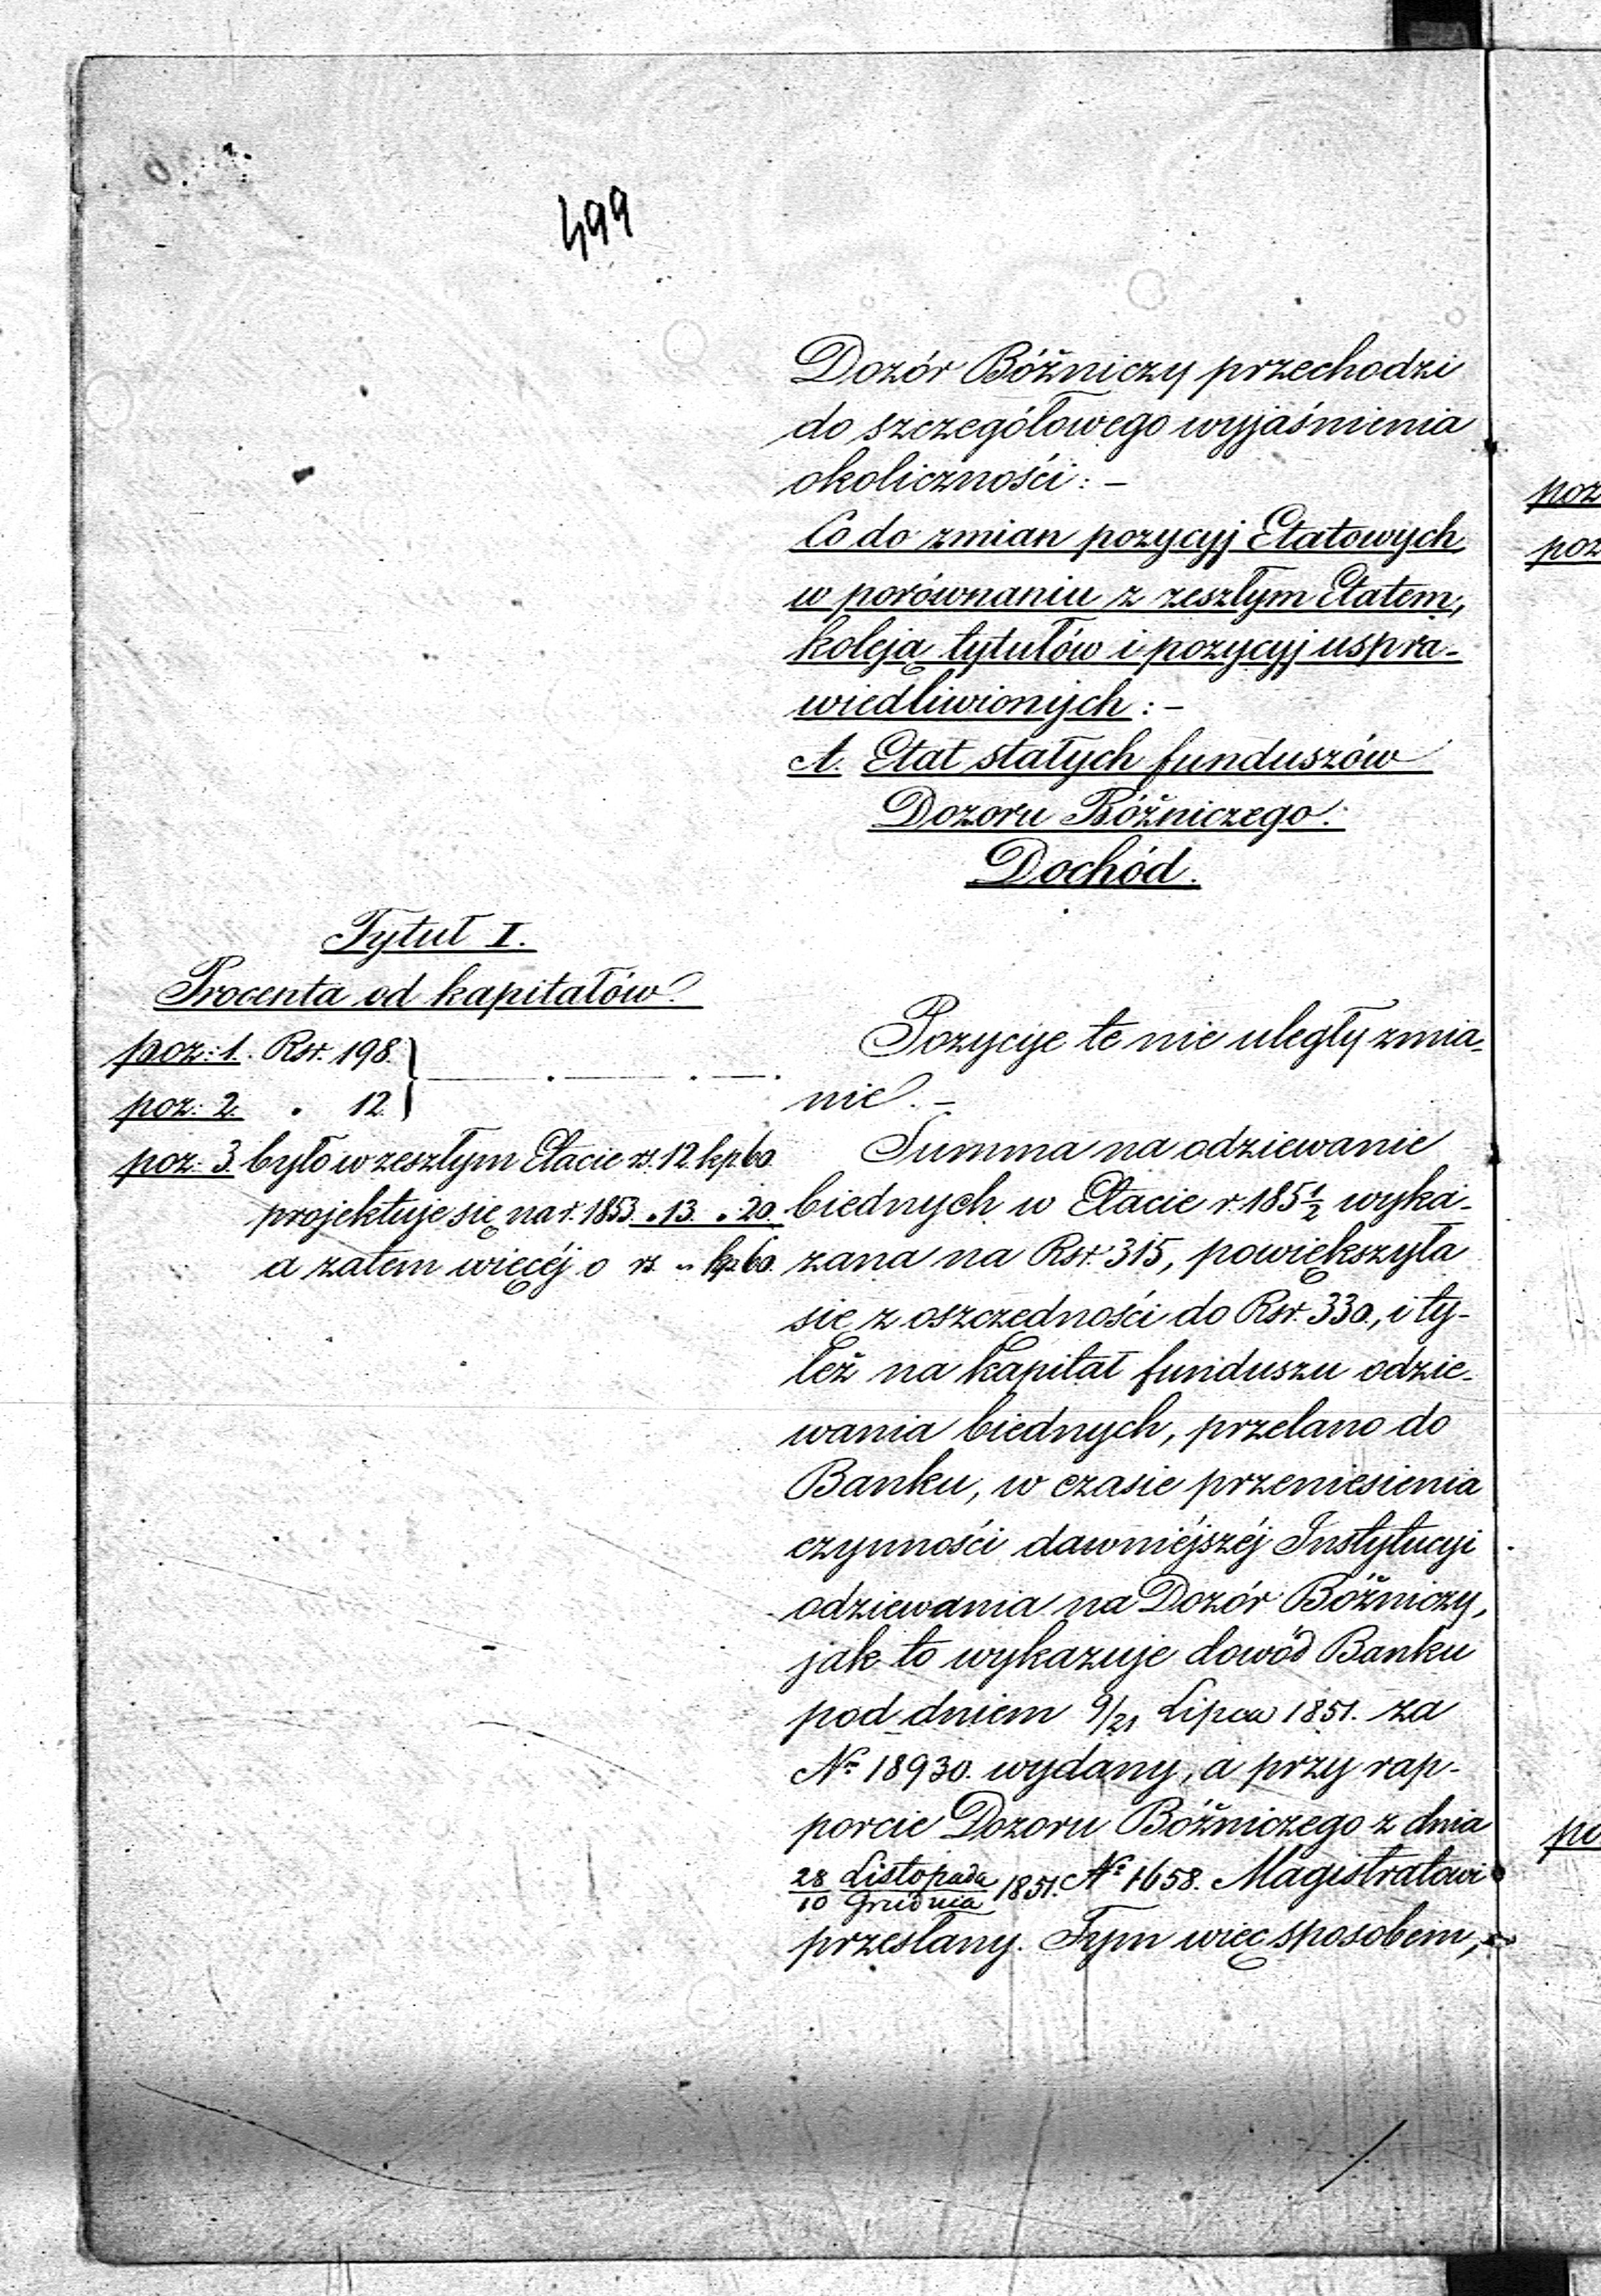 499
Dozór Bóżniczy przechodzi
do szczegółowego wyjaśnienia
okoliczności: –
Co do zmian pozycyj Etatowych
w porównaniu z zeszłym Etatem,
koleją tytułów i pozycyj uspra-
wiedliwionych: –
A. Etat stałych funduszów
Dozoru Bóżniczego.
Dochód.
Tytuł I.
Procenta od kapitałów.
poz: 1. Rsr. 198.
poz: 2. " 12.
poz: 3. było w zeszłym Etacie rs. 12. kp. 60.
projektuje się na r. 1853. " 13. " 20.
a zatem więcéj o rs. " kp. 60.
Pozycye te nie uległy zmia-
nie. –
Summa na odziewanie
biednych w Etacie r. 185½ wyka-
zana na Rsr. 315, powiększyła
się z oszczędności do Rsr. 330, i ty-
leż na kapitał funduszu odzie-
wania biednych, przelano do
Banku, w czasie przeniesienia
czynności dawniéjszéj Instytucyi
odziewania na Dozór Bóżniczy,
jak to wykazuje dowód Banku
pod dniem 9/21 Lipca 1851. za
№ 18930. wydany, a przy rap-
porcie Dozoru Bóżniczego z dnia
28 Listopada/10 Grudnia 1851. № 1658. Magistratowi
przesłany. Tym więc sposobem,
poz
poz
po